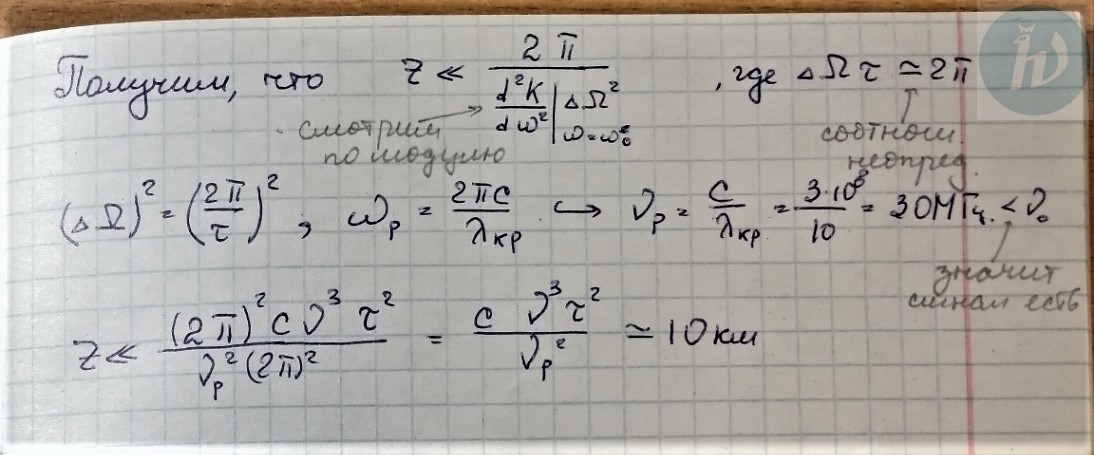 Получим, что z ≪ 2π / (d²k/dω² |ω=ω₀ ΔΩ²), где ΔΩτ ≃ 2π
смотрим по модулю
соотнош. неопред.
(ΔΩ)² = (2π/τ)²; ωp = 2πc/λкр ↪ νp = c/λкр = 3·10⁸/10 = 30МГц. < ν₀
значит сигнал есть
z ≪ (2π)² c ν³ τ² / νp² (2π)² = c ν³ τ² / νp² ≃ 10 км